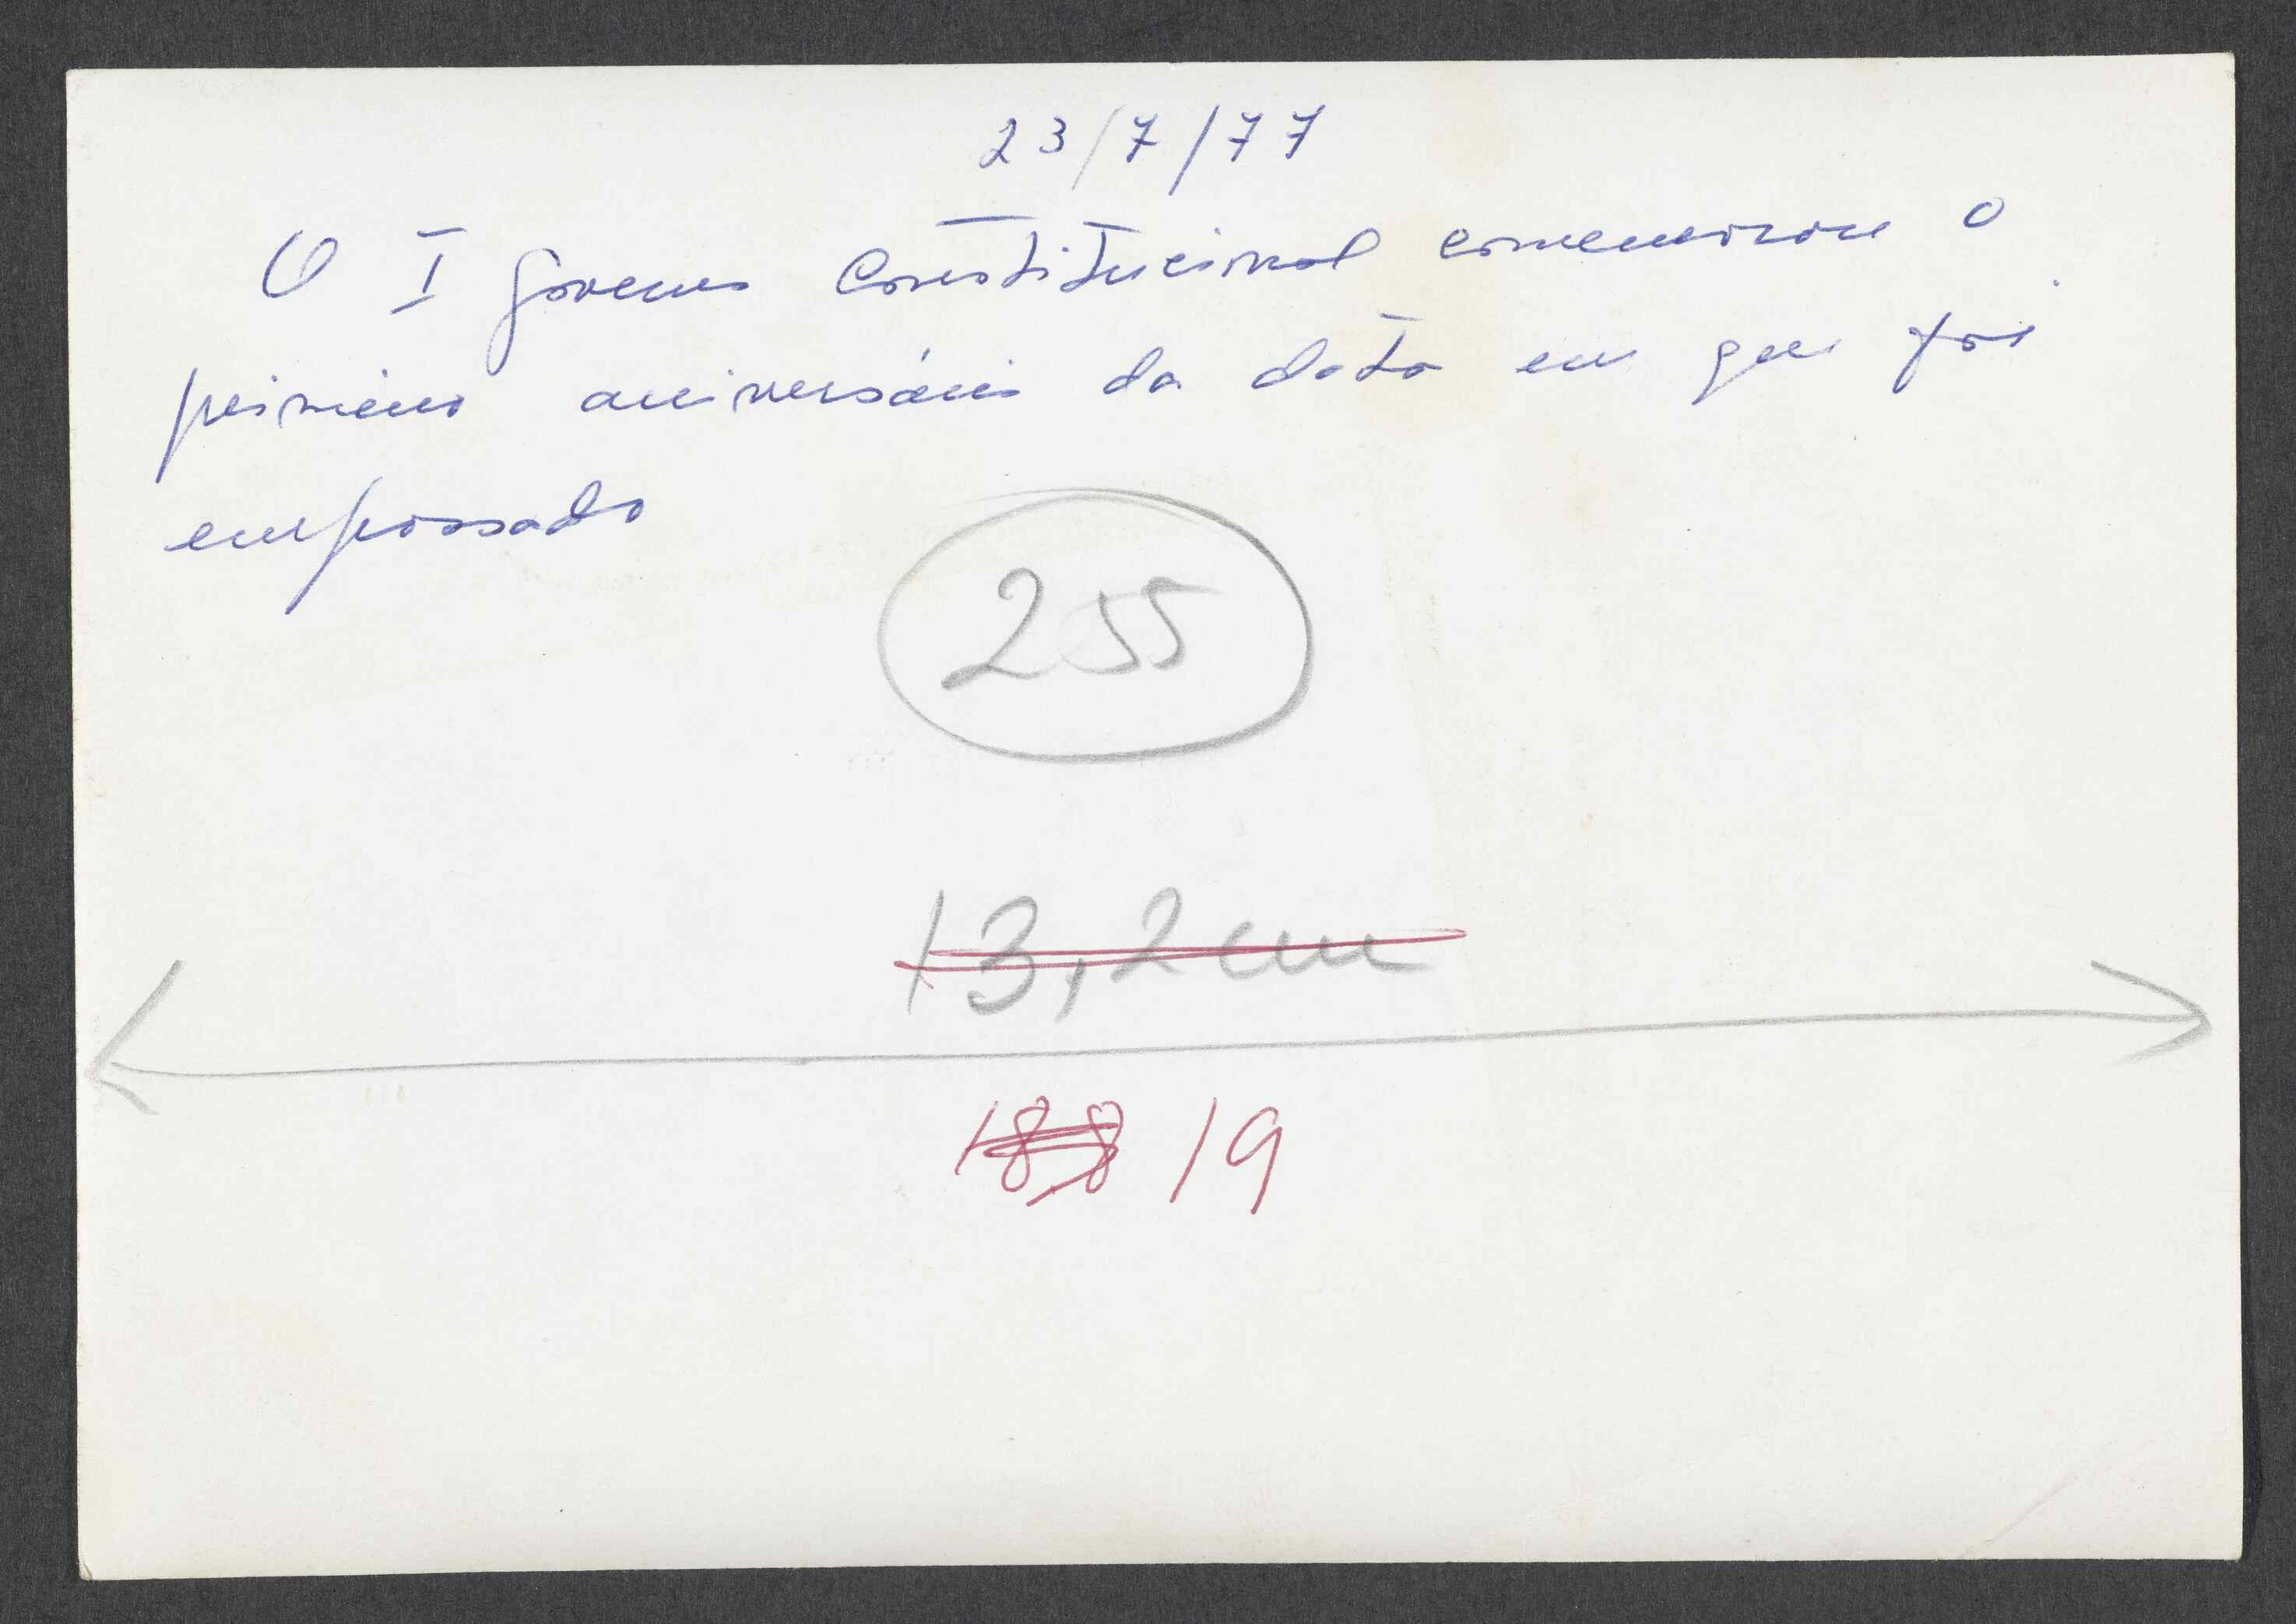 23/7/77
O I Governo Constitucional comemorou o
primeiro aniversário da data em que foi
empossado
255
13,2 cm
18,8 19